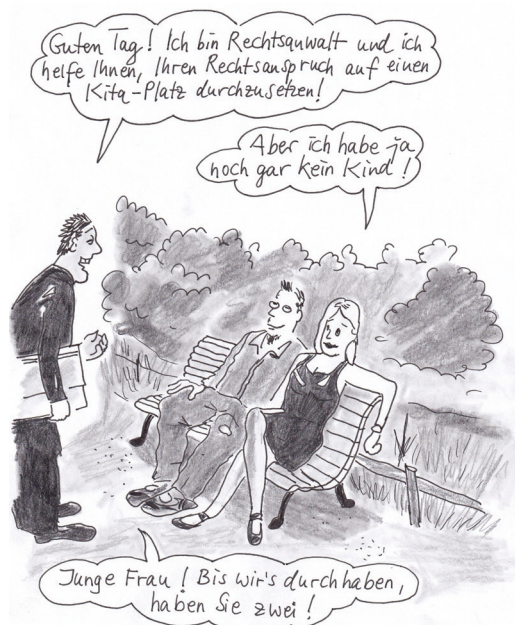 Guten Tag! Ich bin Rechtsanwalt und ich
helfe Ihnen, Ihren Rechtsanspruch auf einen
Kita-Platz durchzusetzen!
Aber ich habe ja
noch gar kein Kind!
Junge Frau! Bis wir's durchhaben,
haben Sie zwei!